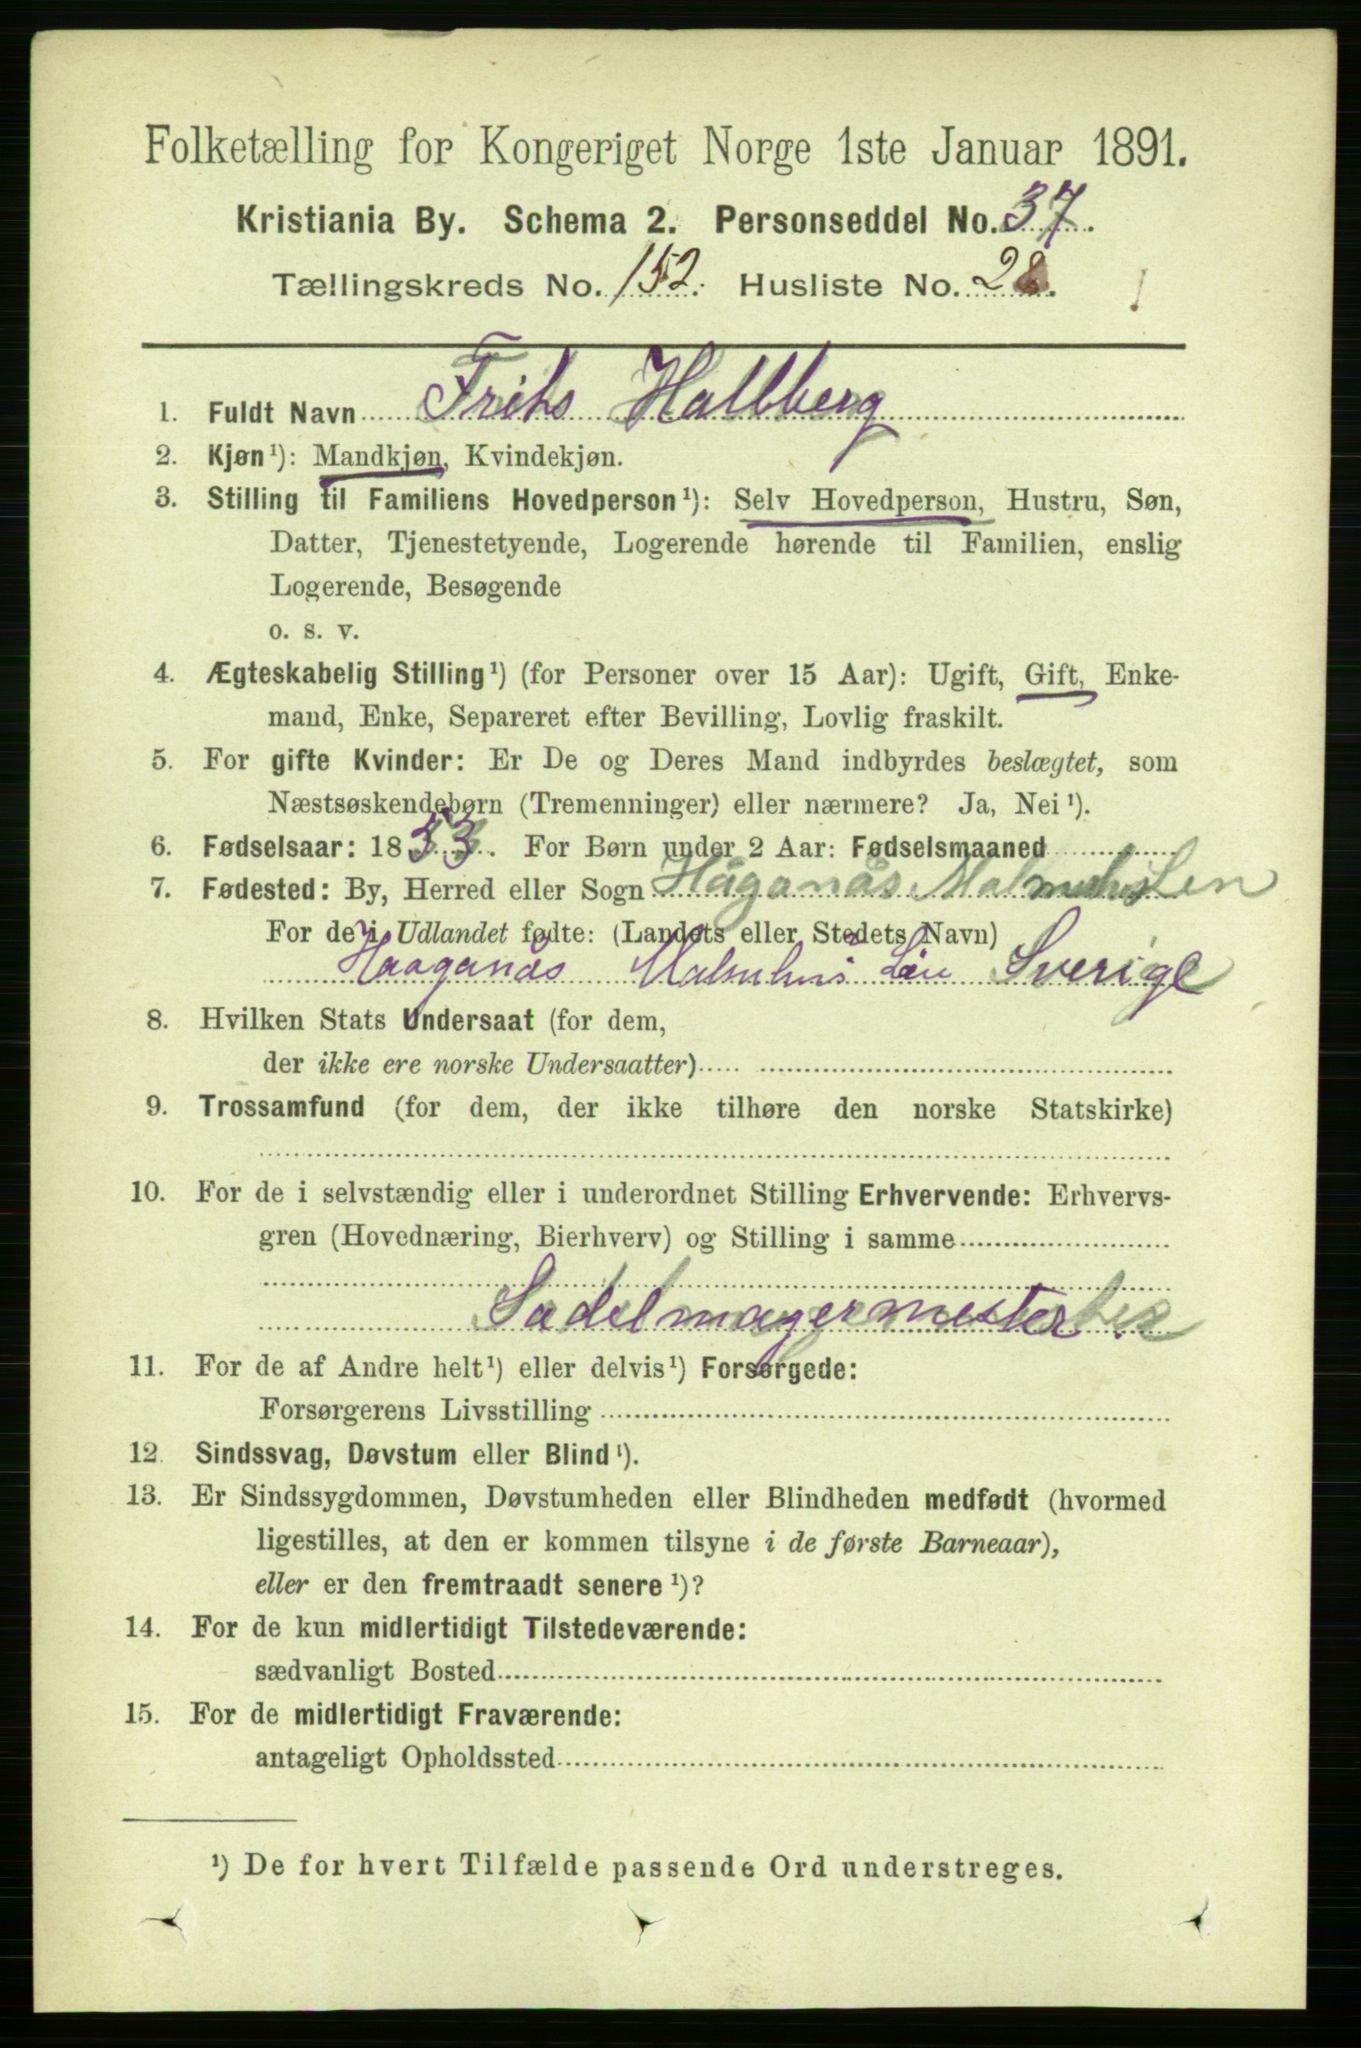 Folketælling for Kongeriget Norge 1ste Januar 1891.
Kristiania By. Schema 2. Personseddel No. 37.
Tællingskreds No. 152. Husliste No. 28.
1. Fuldt Navn Frits Hallberg
2. Kjøn¹): Mandkjøn, Kvindekjøn.
3. Stilling til Familiens Hovedperson¹): Selv Hovedperson, Hustru, Søn,
Datter, Tjenestetyende, Logerende hørende til Familien, enslig
Logerende, Besøgende
o. s. v.
4. Ægteskabelig Stilling¹) (for Personer over 15 Aar): Ugift, Gift, Enke-
mand, Enke, Separeret efter Bevilling, Lovlig fraskilt.
5. For gifte Kvinder: Er De og Deres Mand indbyrdes beslægtet, som
Næstsøskendebørn (Tremenninger) eller nærmere? Ja, Nei¹).
6. Fødselsaar: 1853. For Børn under 2 Aar: Fødselsmaaned
7. Fødested: By, Herred eller Sogn Höganäs Malmøhuslen
For de i Udlandet fødte: (Landets eller Stedets Navn)
Haaganäs Malmhus Län Sverige
8. Hvilken Stats Undersaat (for dem,
der ikke ere norske Undersaatter)
9. Trossamfund (for dem, der ikke tilhøre den norske Statskirke)
10. For de i selvstændig eller i underordnet Stilling Erhvervende: Erhvervs-
gren (Hovednæring, Bierhverv) og Stilling i samme
Sadelmagermester
11. For de af Andre helt¹) eller delvis¹) Forsørgede:
Forsørgerens Livsstilling
12. Sindssvag, Døvstum eller Blind¹).
13. Er Sindssygdommen, Døvstumheden eller Blindheden medfødt (hvormed
ligestilles, at den er kommen tilsyne i de første Barneaar),
eller er den fremtraadt senere¹)?
14. For de kun midlertidigt Tilstedeværende:
sædvanligt Bosted
15. For de midlertidigt Fraværende:
antageligt Opholdssted
¹) De for hvert Tilfælde passende Ord understreges.